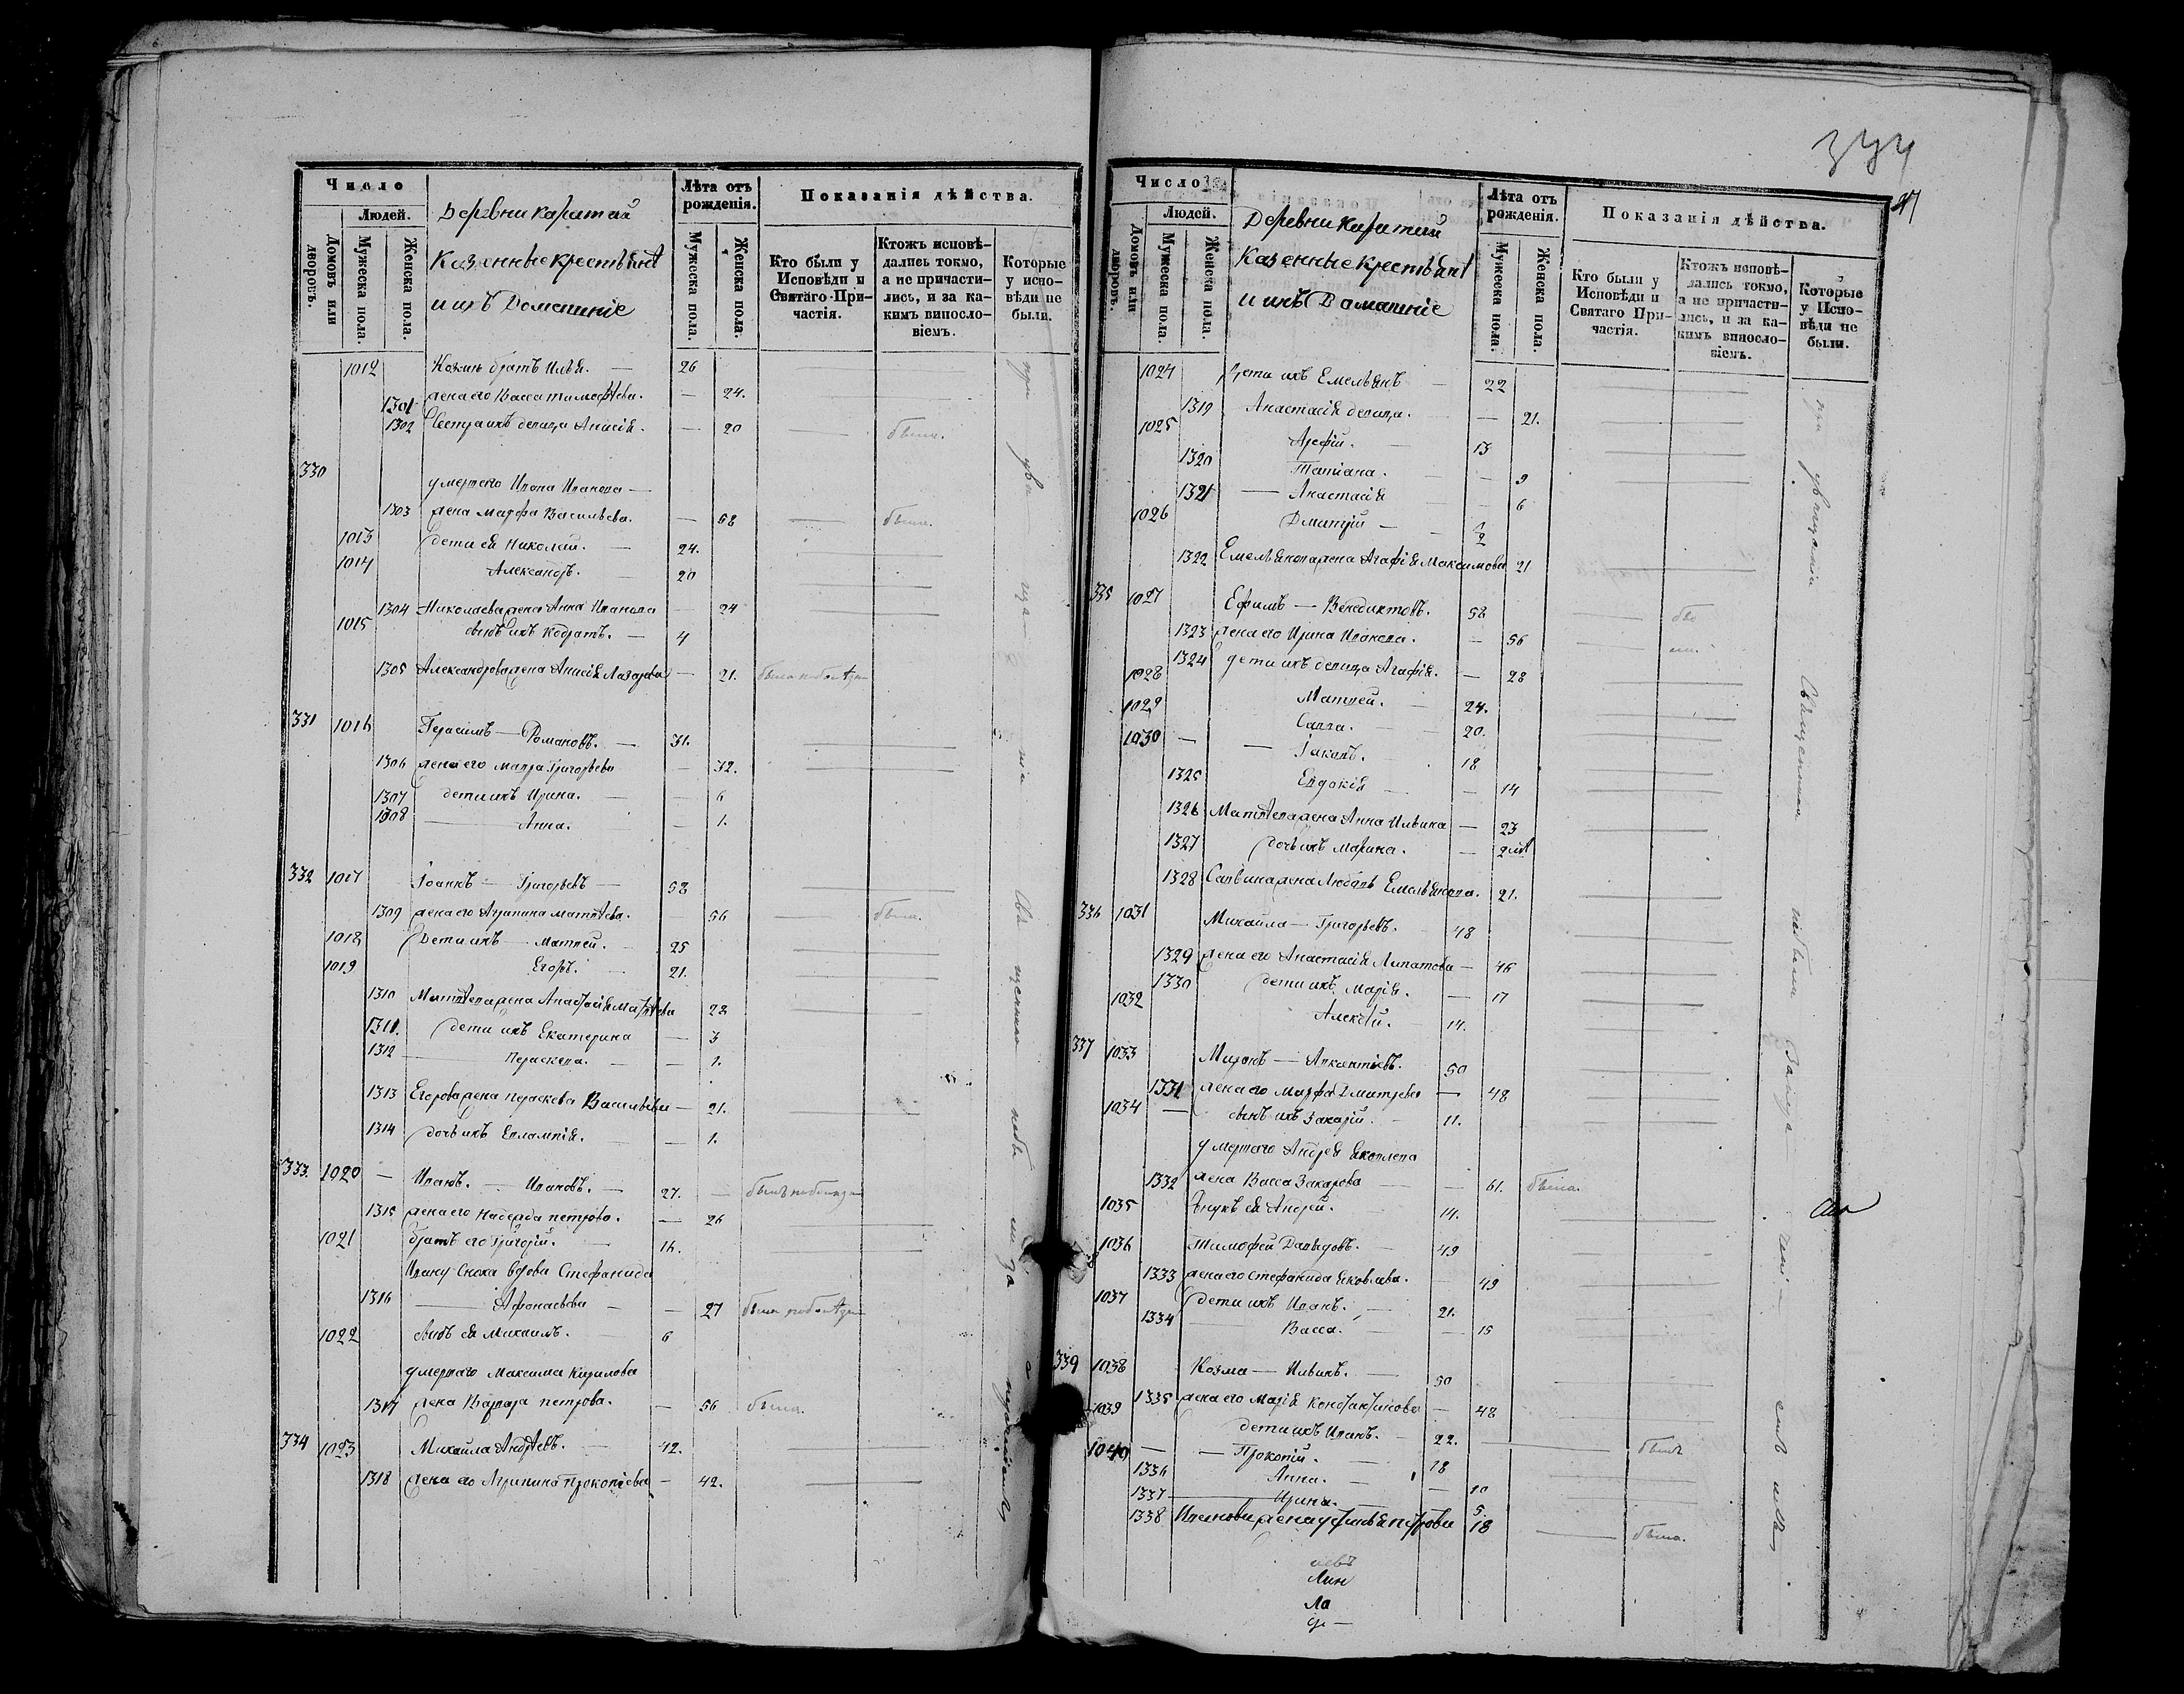 Число
Людей.
Домовъ или дворовъ.
Мужеска пола.
Женска пола.
Деревни Каратай
Казенные крестьяне
и ихъ Домашніе
Лѣта отъ рожденія.
Мужеска пола.
Женска пола.
Показанія дѣйства.
Кто были у Исповѣди и Святаго Причастія.
Ктожъ исповѣдались токмо, а не причастились, и за какимъ винословіемъ.
Которые у исповѣди не были.
1012 братъ Илья. — 26
1301 жена его Васса Тимофѣева. — 24.
1302 Сестра ихъ девица Анисія. — 20 была.
330 умершаго Ивана Иванова —
1303 жена Марфа Васильева. — 58 была.
1013 дети ея Николай. — 24.
1014 Александръ. — 20
1304 Николаева жена Анна Иванова — 24
1015 сынъ ихъ Кодратъ. — 4
1305 Александрова жена Анисія Лазарева — 21.
331 1016 Герасимъ — Романовъ. — 31.
1306 жена его Мавра Григорьева — 32.
1307 дети ихъ Ирина. — 6
1308 Анна. — 1.
332 1017 Іоаннъ — Григорьевъ — 58
1309 жена его Агрипина Матвѣева. 56 была.
1018 Дети ихъ — Матвей. — 25
1019 Егоръ. — 21.
1310 Матвѣева жена Анастасія Матвѣева 22
1311. дети ихъ Екатерина — 3
1312 Параскева. — 1.
1313 Егорова жена Параскева Васильева — 21.
1314 дочь ихъ Евлампія. — 1.
333. 1020 — Иванъ. — Ивановъ. — 27.
1315 жена его Надежда Петрова. — 26
1021 братъ его Григорій. — 16.
Ивану сноха вдова Стефанида
1316 Афонасьева — 27
1022 сынъ ея Михаилъ. — 6
умершаго Максима Кирилова
1317 жена Варвара Петрова. — 56 была.
334 1023 Михайла Андрѣевъ. — 42.
1318 жена его Агрипина Прокопіева — 42.
344
Число
Людей.
Домовъ или дворовъ.
Мужеска пола.
Женска пола.
Деревни Каратай
Казенные крестьяне
и ихъ Домашніе
Лѣта отъ рожденія.
Мужеска пола.
Женска пола.
Показанія дѣйства.
Кто были у Исповѣди и Святаго Причастія.
Ктожъ исповѣдались токмо, а не причастились, и за какимъ винословіемъ.
Которые у Исповѣди не были.
1024 Дети ихъ Емельянъ — 22
1319 Анастасія девица. — 21.
1025 Арефій. — 13
1320 Татіана. — 9
1321 — Анастасія — 6
1026 Дмитрій — 2
1322 Емельянова жена Агафія Максимова 21
335 1027 Ефимъ — Венедиктовъ. 58
1323 жена его Ирина Иванова. — 56
1324 дети ихъ девица Агафія. — 28
1028 Матвей. — 24.
1029 Савва. — 20.
1030 — Іаковъ. 18
1325 Евдокія — 14
1326 Матвѣева жена Анна Ильина — 23
1327 дочь ихъ Марина. —
1328 Саввина жена Любовь Емельянова. 21.
336 1031 Михайла — Григорьевъ. 48
1329 жена его Анастасія Липатова — 46
1330 дети ихъ Марія. — 17
1032 Алексѣй. 14.
337 1033 Миронъ — 50
1331 жена его Марфа Дмитрева — 48
1034 — сынъ ихъ Захарій. — 11.
умершаго Андрея Яковлева
1332 жена Васса Захарова — 61. была.
1035 внукъ ея Андрей. 14.
1036 Тимофей Давыдовъ. — 49
1333 жена его Стефанида Яковлева. — 49
1037 дети ихъ Иванъ. — 21.
1334 Васса. — 15
339 1038 Козма — Ильинъ. — 50
1335 жена его Марія Константинова — 48
1039 дети ихъ Иванъ. — 22. былъ
1040 — Прокопій. — 18
1336 Анна. — 10
1337 Ирина. — 5.
1338 Иванова жена Петрова 18 была.